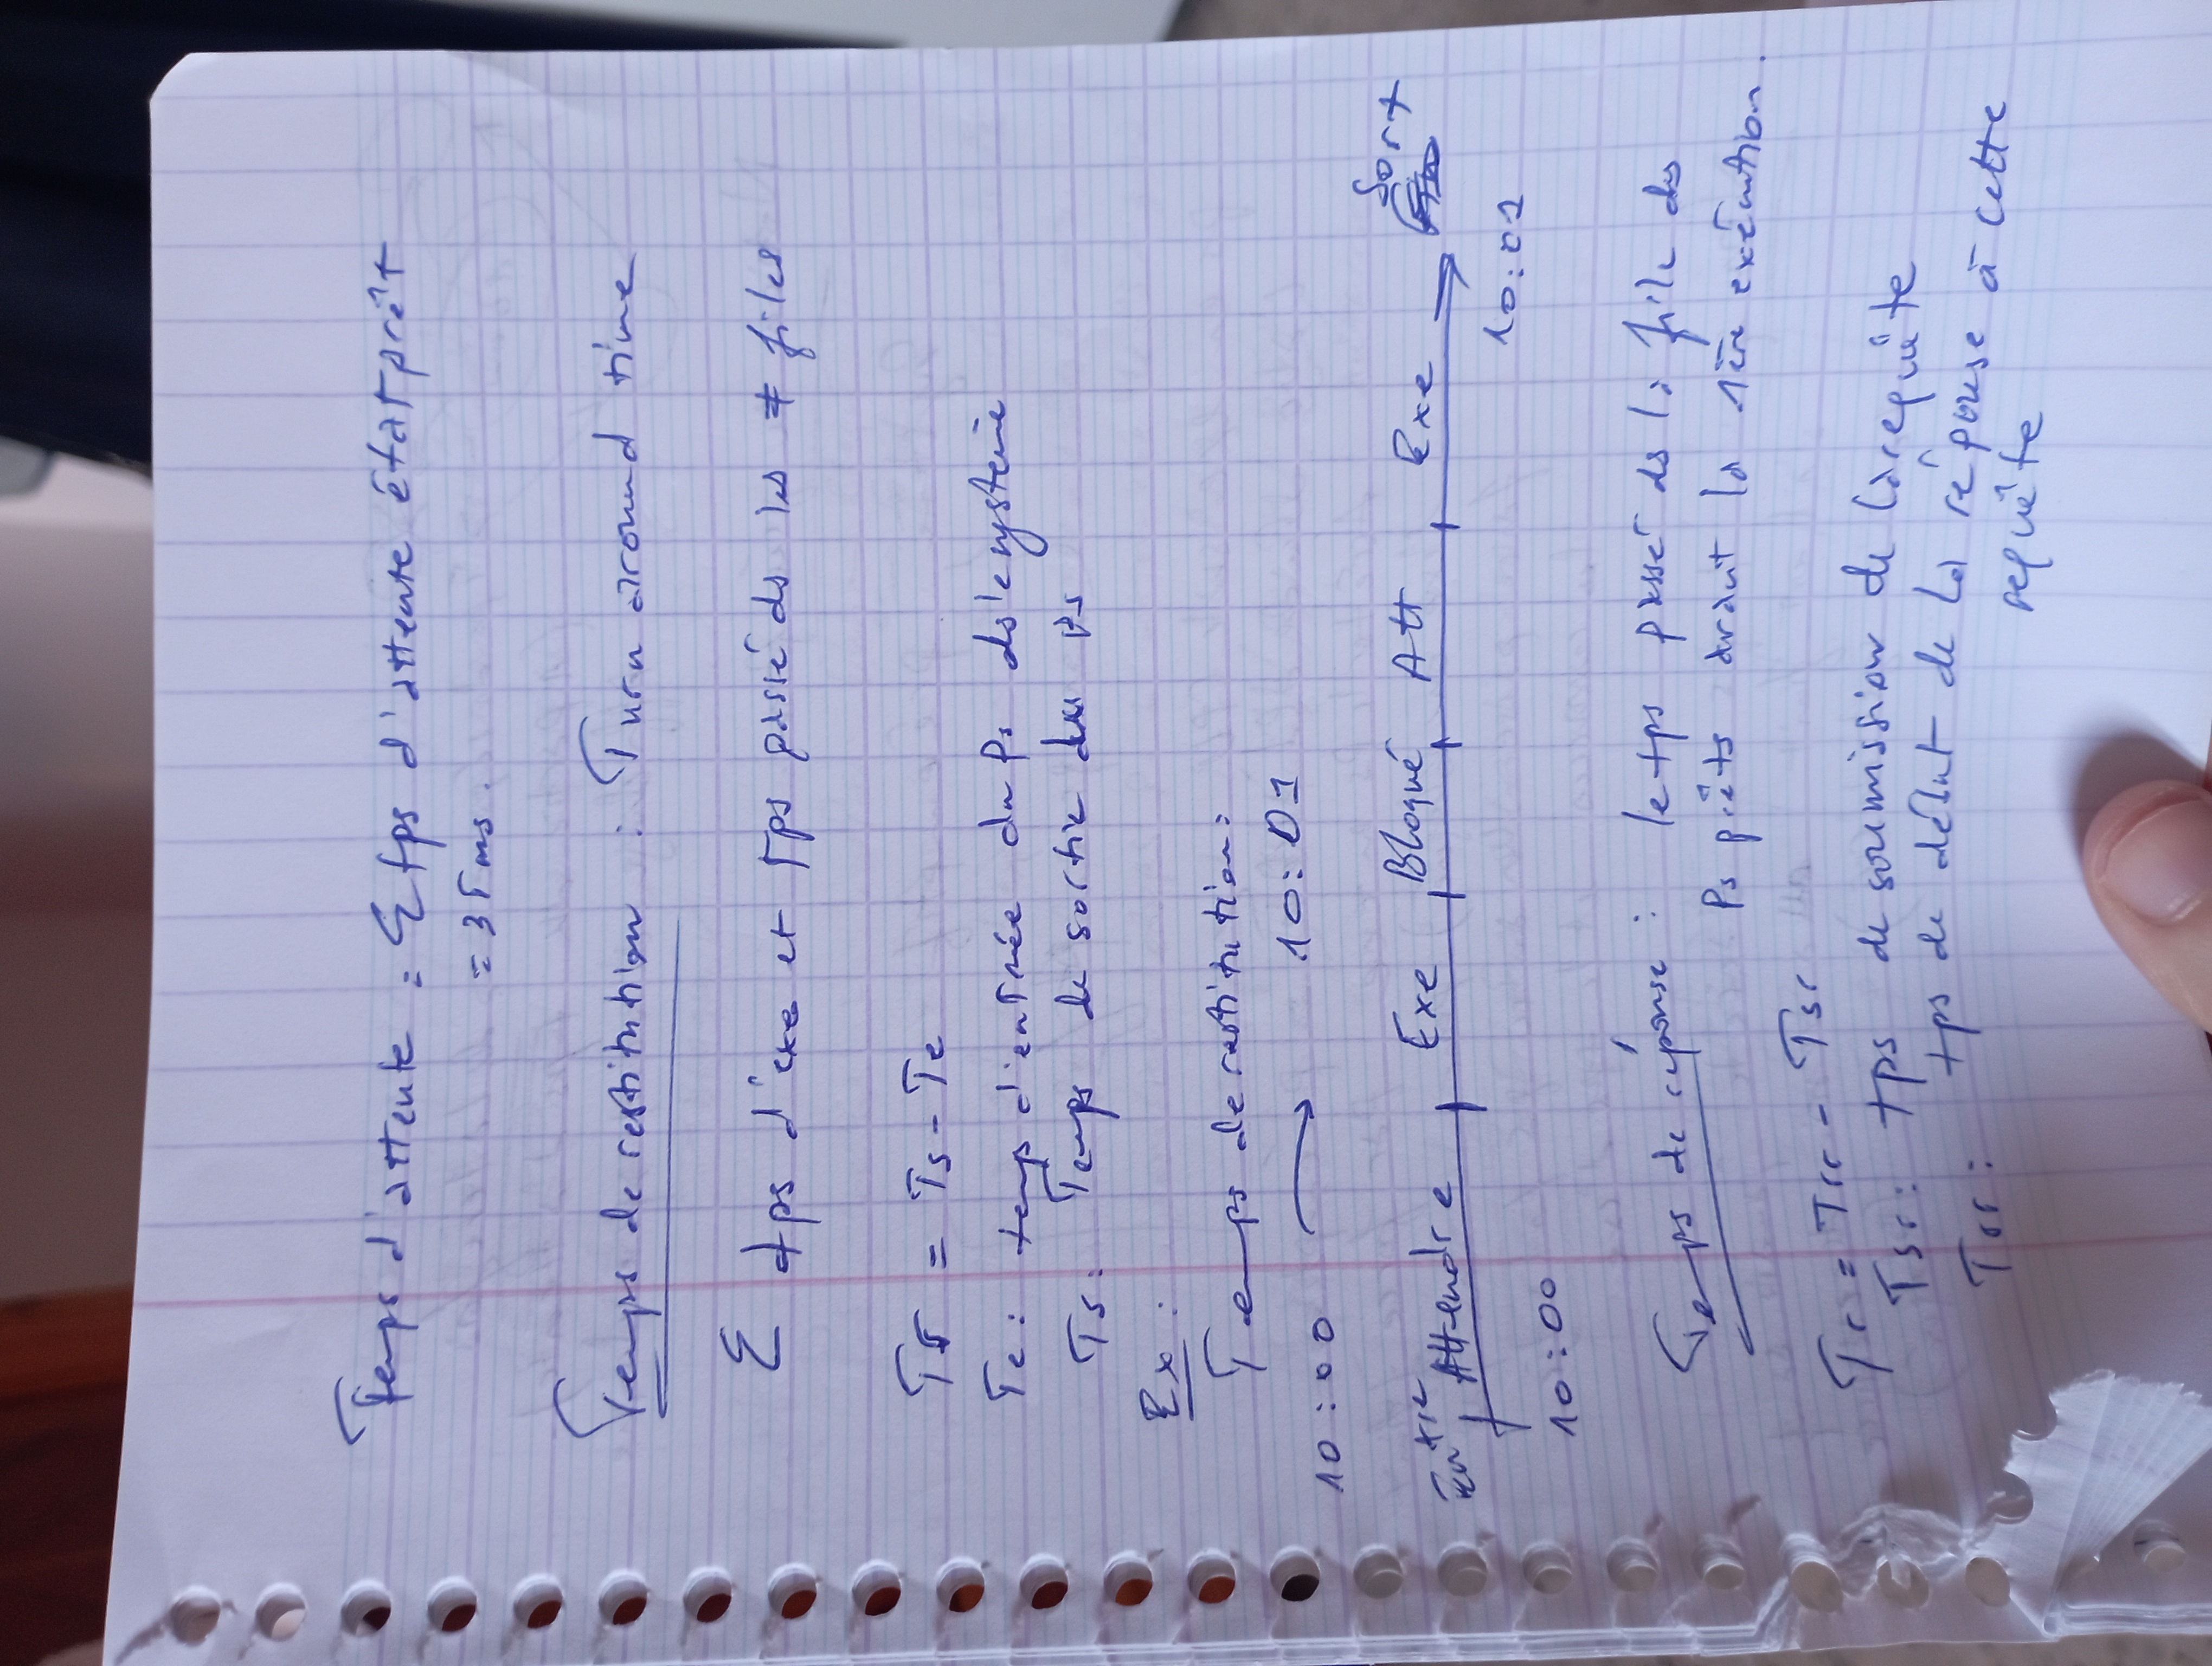 Temps d'attente = Σ tps d'attente état prêt
= 35 ms.
Temps de restitution : Turn around time
Σ tps d'exe et tps passé ds les ≠ files
= Ts - Te
Te : temps d'entrée du Ps ds le système
Ts : Temps de sortie du Ps
Ex :
Temps de restitution :
10 : 00 → 10 : 01
Entre Attendre Exe Bloqué Att Exe Sort
10 : 00 10 : 01
Temps de réponse : le tps passé ds la file des
Ps prêts avant la 1ère exécution.
Tr = Trr - Tsr
Tsr : tps de soumission de la requête
Trr : tps de début de la réponse à cette
requête